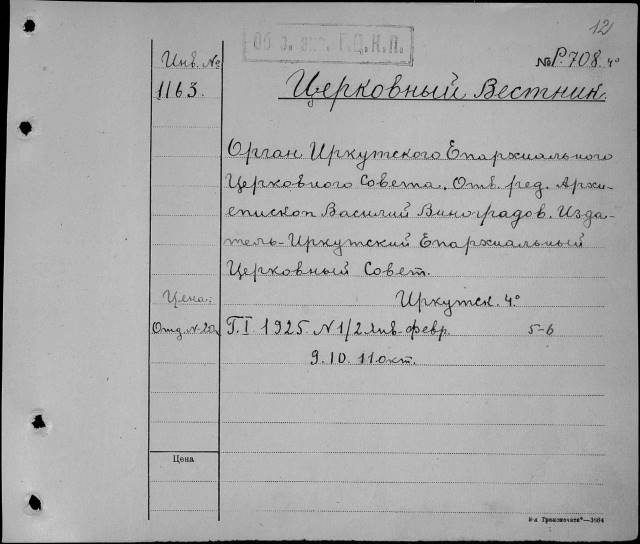 12
Обр. экз. Г.Ц.К.П.
Инв. №
1163.
№ Р.708. 4°
Церковный Вестник.
Орган Иркутского Епархиального
Церковного Совета. Отв. ред. Архи-
епископ Василий Виноградов. Изда-
тель-Иркутский Епархиальный
Церковный Совет.
Цена:
Иркутск. 4°
Отд. №
Г.I. 1925. N 1/2 янв-февр. 5-6
9. 10. 11 окт.
Цена